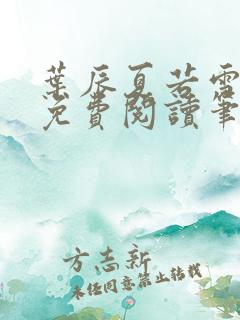 葉辰夏若雪
免費閱讀筆
方志新
未經同意禁止轉載